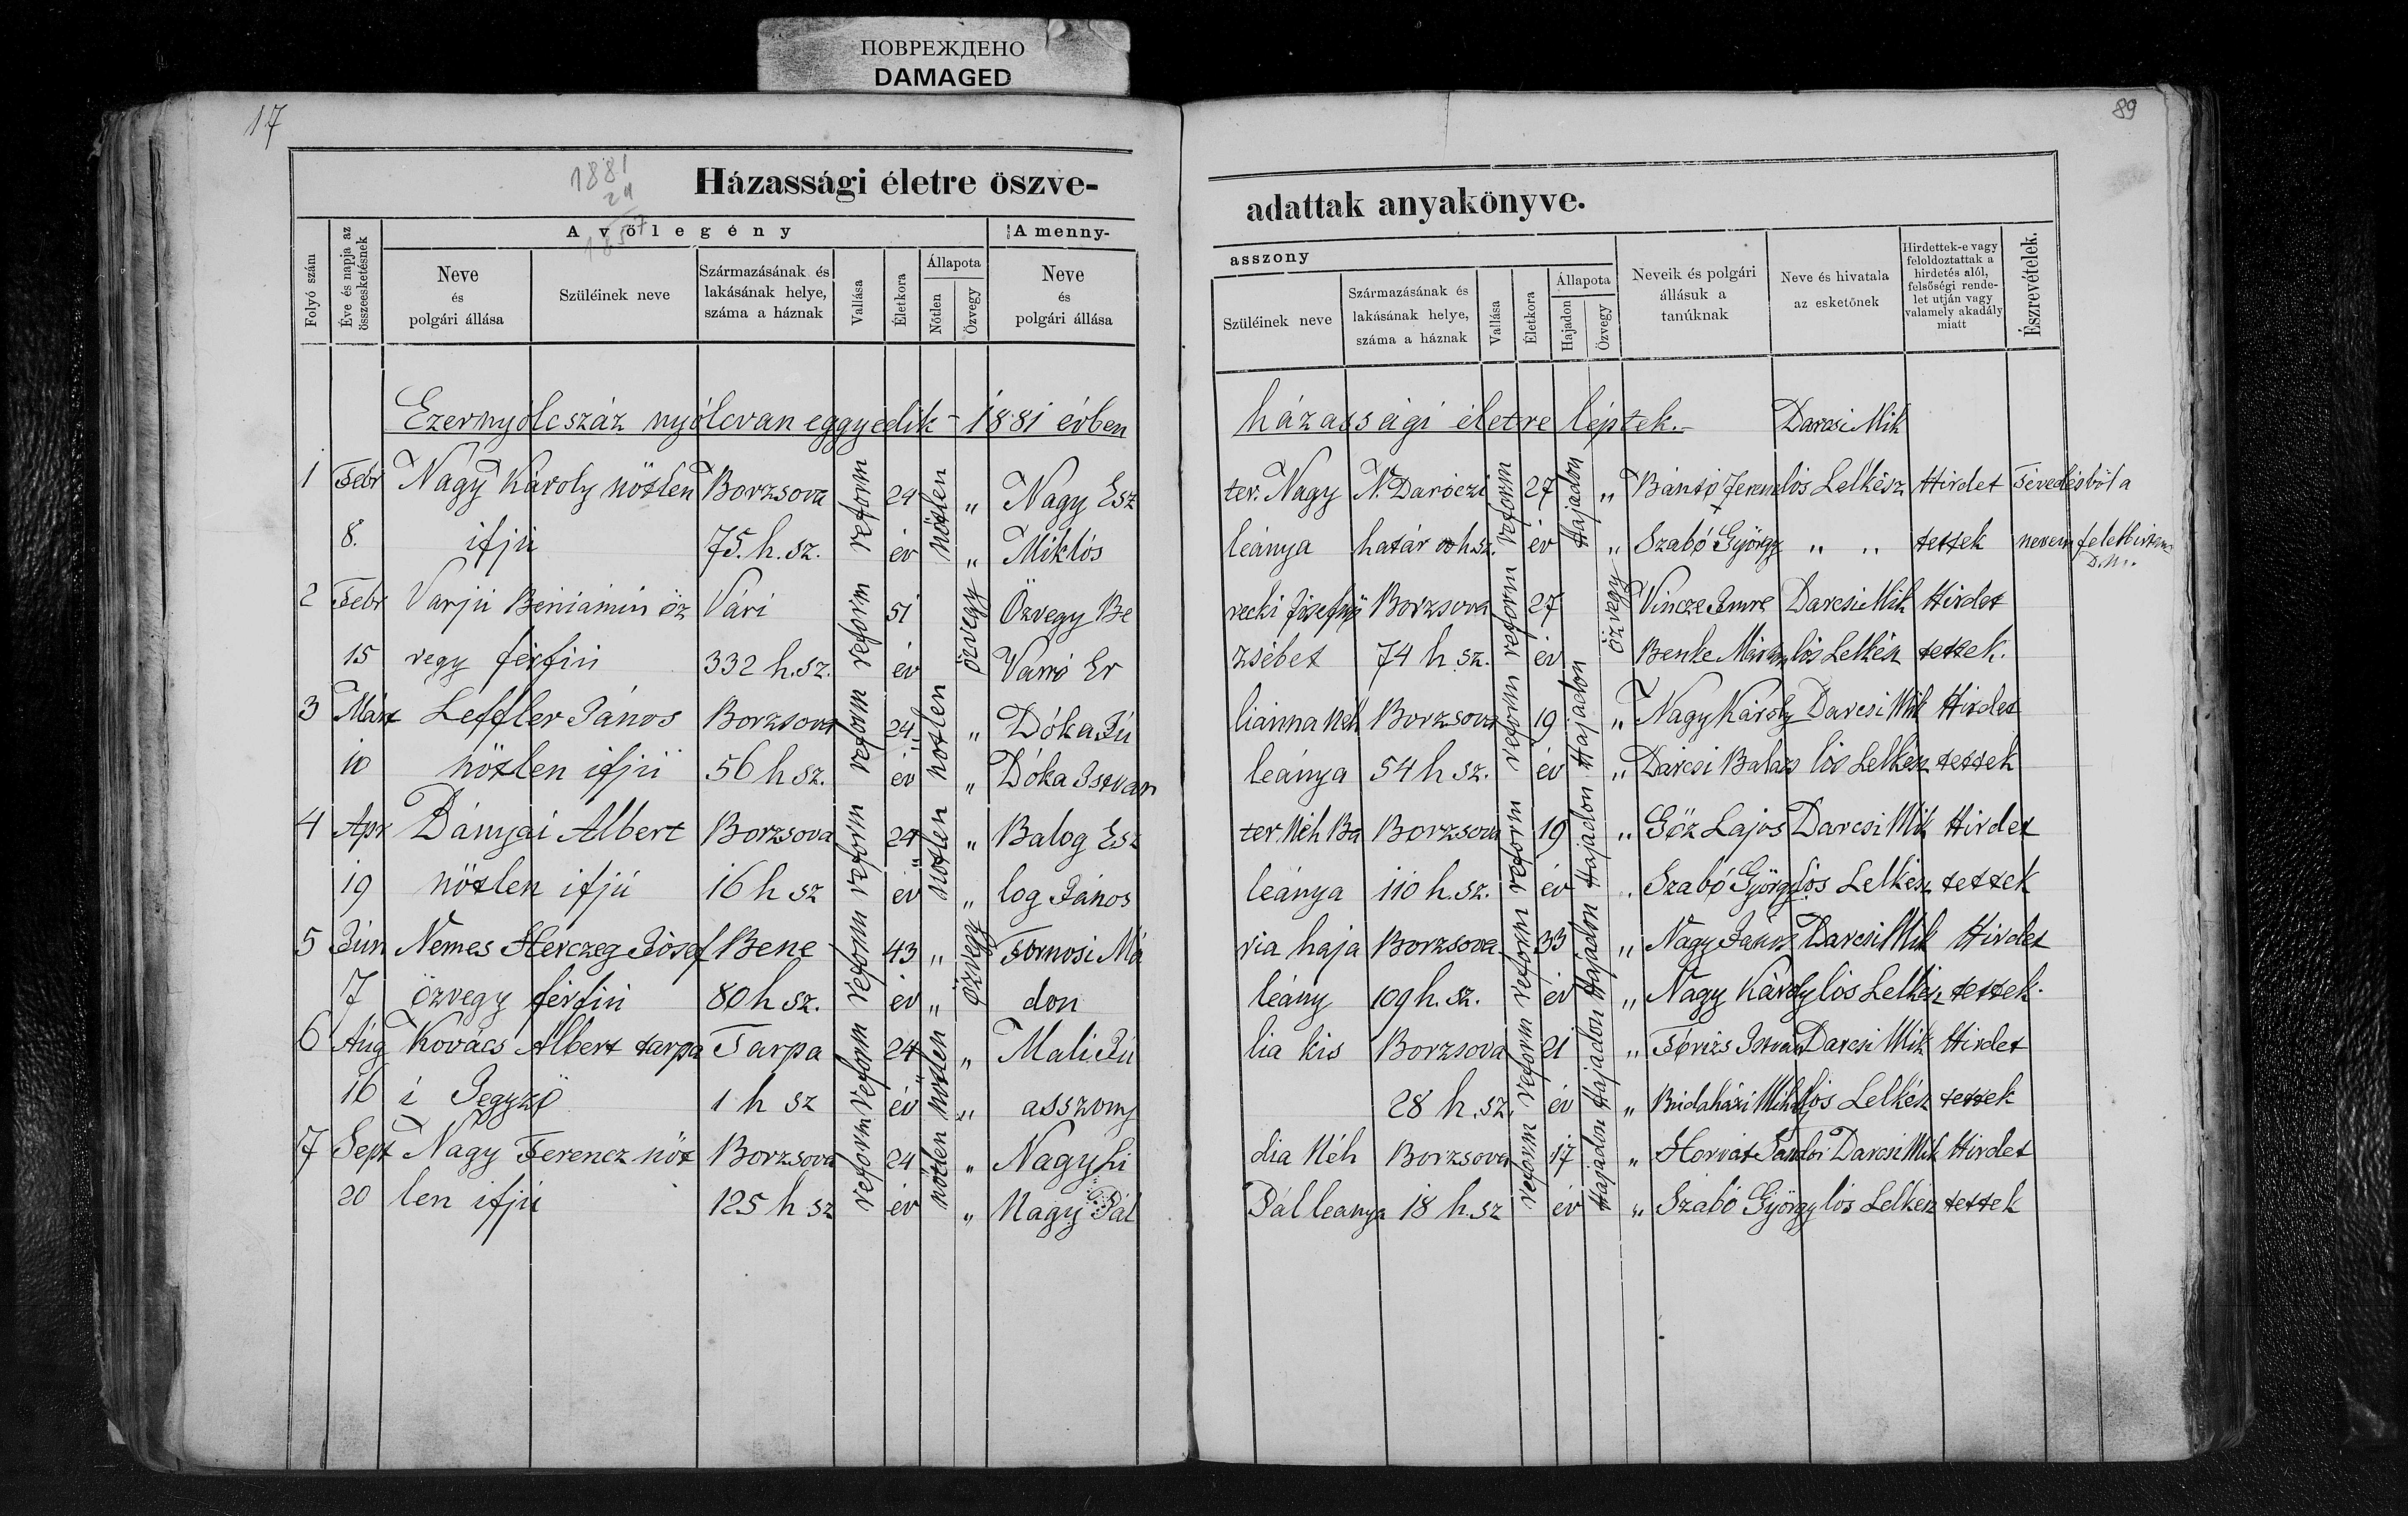 ПОВРЕЖДЕНО
DAMAGED
17
89
1881
24
1857
Házassági életre öszve-
adattak anyakönyve.
Folyó szám
Éve és napja az összeesketésnek
A vőlegény
A menny-
asszony
Neve és polgári állása
Szüléinek neve
Származásának és lakásának helye, száma a háznak
Vallása
Életkora
Állapota
Nőtlen
Özvegy
Neve és polgári állása
Szüléinek neve
Származásának és lakásának helye, száma a háznak
Vallása
Életkora
Állapota
Hajadon
Özvegy
Neveik és polgári állásuk a tanúknak
Neve és hivatala az esketőnek
Hirdettek-e vagy feloldoztattak a hirdetés alól, felsőségi rendelet utján vagy valamely akadály miatt
Észrevételek.
Ezernyólcszáz nyólcvan eggyedik - 1881 évben házassági életre léptek.- Darcsi Mik
1 Febr Nagy Károly nötlen Borzsova reform 24 nötlen " Nagy Esz ter. Nagy N. Daróczi reform 27 Hajadon " Bántó Ferencz lós Lelkész Hirdet Tévedésből a
8. ifjú 75. h. sz. év " Miklós leánya határ h.sz. év " Szabó György " " tettek nevem
D.M.
2 Febr Varjú Béniamin öz Vári reform 51 özvegy Özvegy Be recki Józsefné Borzsova reform 27 özvegy Vincze Imre Darcsi Mik Hirdet
15 vegy férfiú 332 h.sz. év Varró Er zsébet 74 h sz. év Benke lós Lelkész tettek.
3 Márt Leffler János Borzsova reform 24 nötlen " Dóka Jú liánna Néh Borzsova reform 19 Hajadon " Nagy Károly Darcsi Mik Hirdet
10 nötlen ifjú 56 h sz. év " Dóka Istvan leánya 54 h sz. év " Darcsi Balázs lós Lelkész tettek
4 Apr Dányai Albert Borzsova reform 24 nötlen " Balog Esz ter Néh Ba Borzsova reform 19 Hajadon " Göz Lajos Darcsi Mik Hirdet
19 nötlen ifjú 16 h sz év " log János leánya 110 h.sz. év " Szabó György lós Lelkész tettek
5 Jún Nemes Herczeg Jósef Bene reform 43 " özvegy Tornosi Má ria haja Borzsova reform 33 Hajadon " Nagy János Darcsi Mik Hirdet
7 özvegy férfiú 80 h sz. év " don leány 109 h. sz. év " Nagy Károly lós Lelkész tettek.
6 Aúg Kovács Albert tarpa Tarpa reform 24 nötlen " Mali Jú lia kis Borzsova reform 21 Hajadon " Tórizs Istvan Darcsi Mik Hirdet
16 i Jegyző 1 h sz év " asszony 28 h. sz. év " Budaházi Mihály lós Lelkész tettek
7 Sept Nagy Ferencz nöt Borzsova reform 24 nötlen " Nagy Li dia Néh Borzsova reform 17 Hajadon " Horvát Sándor Darcsi Mik Hirdet
20 len ifjú 125 h sz év " Nagy Pál Pál leanya 18 h.sz év " Szabó György lós Lelkész tettek